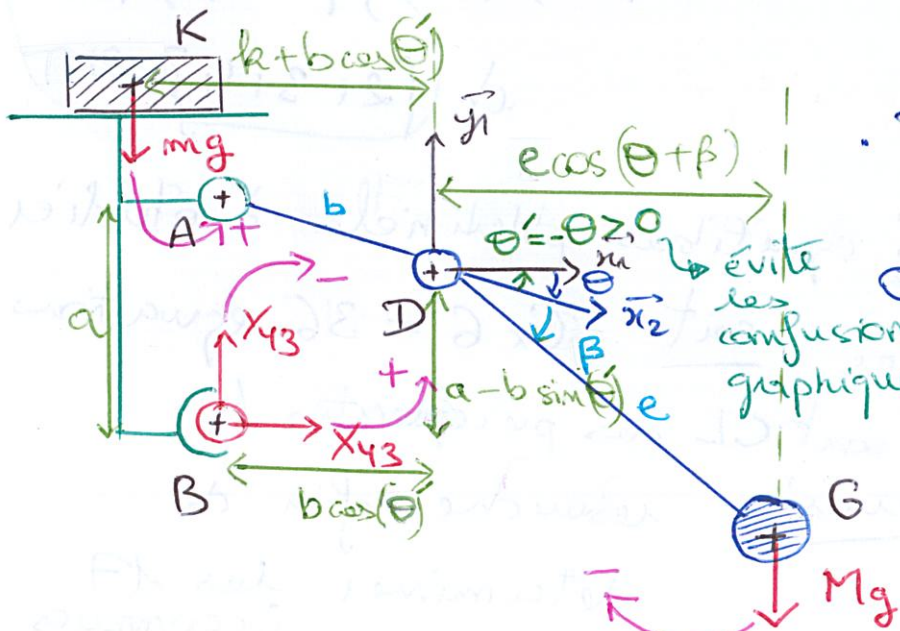 K
k+b cos(θ')
y₁
mg
e cos(θ+β)
A
+
b
θ'=-θ≥0
x₁
θ
évite
les
confusion
graphique
D
x₂
β
a
Y₄₃
-
+
a-b sin(θ')
e
X₄₃
B
b cos(θ')
G
-
Mg